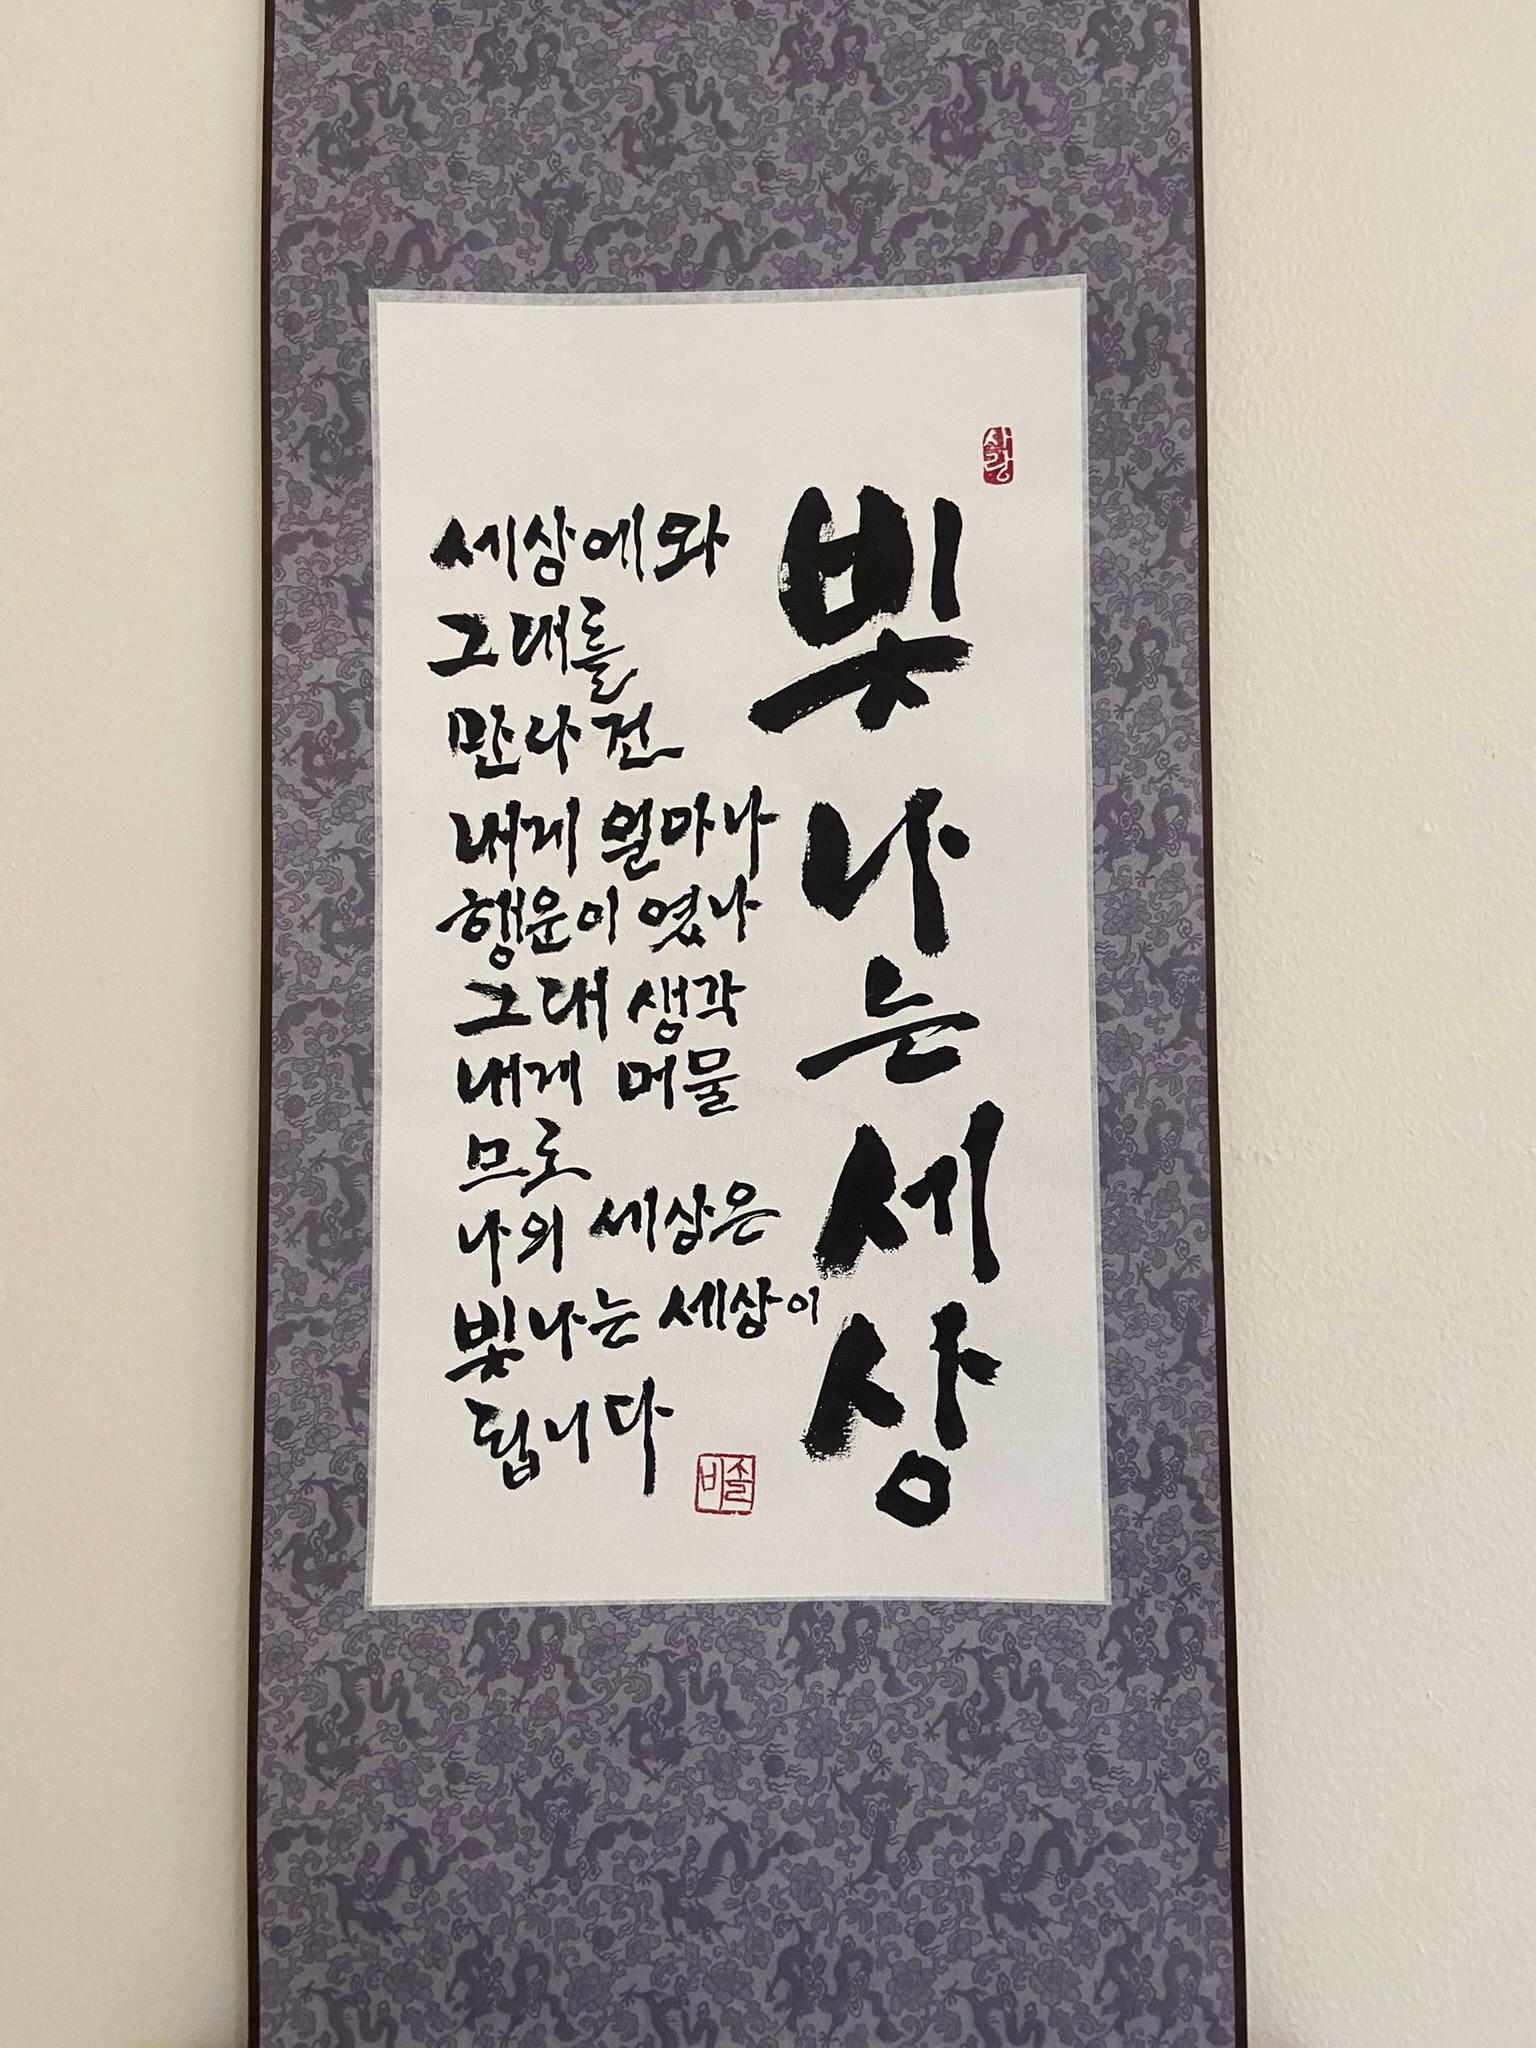 사랑
빛나는세상
세상에 와
그대를
만나건
내게 얼마나
행운이 였나
그대 생각
내게 머물
므로
나의 세상은
빛나는 세상이
됩니다
솔비